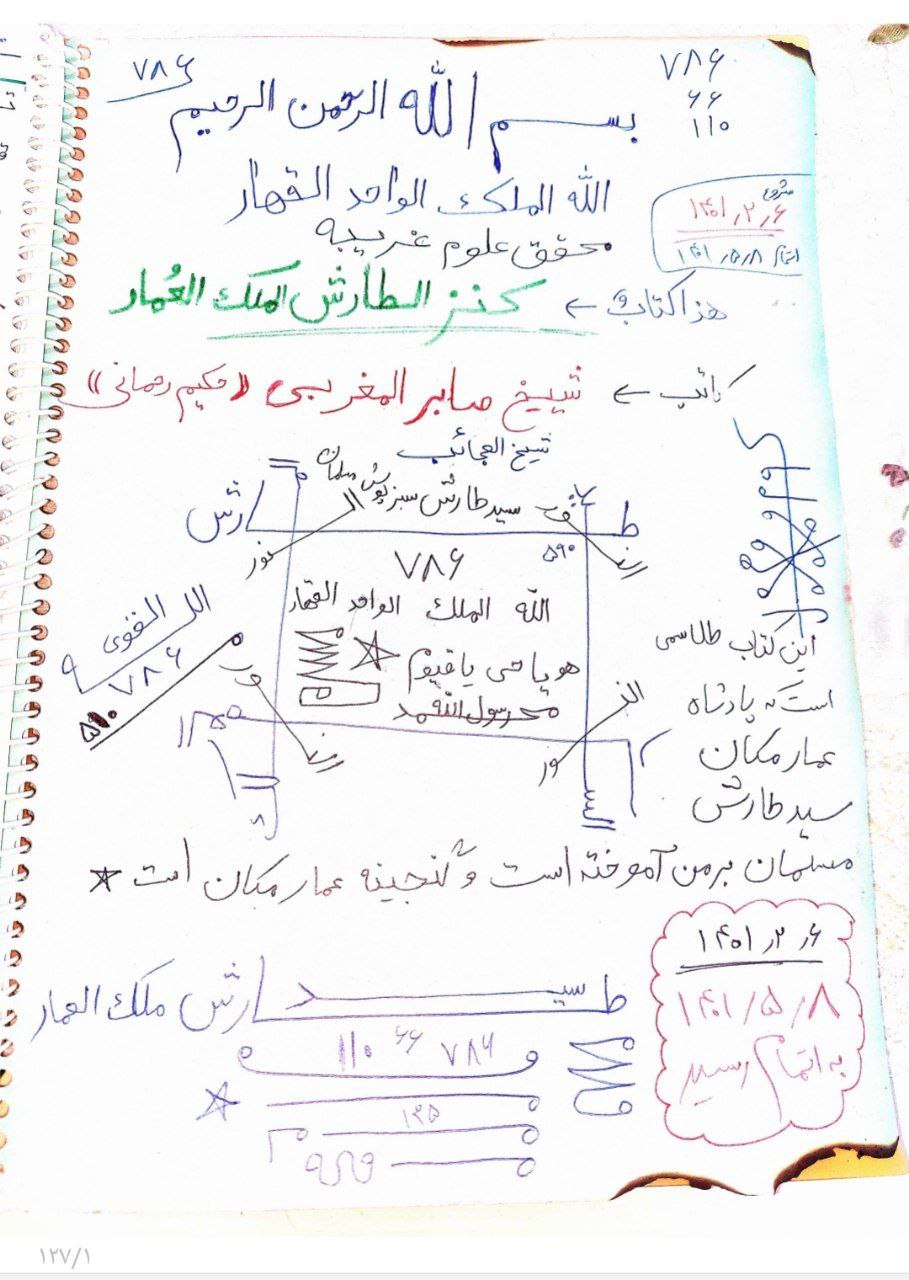 ۷۸۶
۷۸۶
۶۶
۱۱۰
بسم الله الرحمن الرحیم
الله الملک الواحد القهار
محقق علوم غریبه
شروع
۱۴۰۱٫۲٫۶
اتمام ۱۴۰۱٫۵٫۸
هذا کتاب ← کنز الطارش الملک العُمار
کاتب ← شیخ صابر المغربی «حکیم رحمانی»
شیخ العجائب
سید طارش سبزپوش مسلمان
ط
ارش
النور
۵۹۰
۷۸۶
الله الملک الواحد القهار
هو یا حی یا قیوم
محمد رسول الله
۷۸۶
۵۹۰
النور
النور
این کتاب طلاسمی
است که پادشاه
عمار مکان
سید طارش
مسلمان بر من آموخته است و گنجینه عمار مکان است
۱۴۰۱٫۲٫۶
۱۴۰۱/۵/۸
به اتمام رسید
سید طارش ملک العمار
۷۸۶ ۶۶ ۱۱۰
۱۳۵
۱۲۷/۱